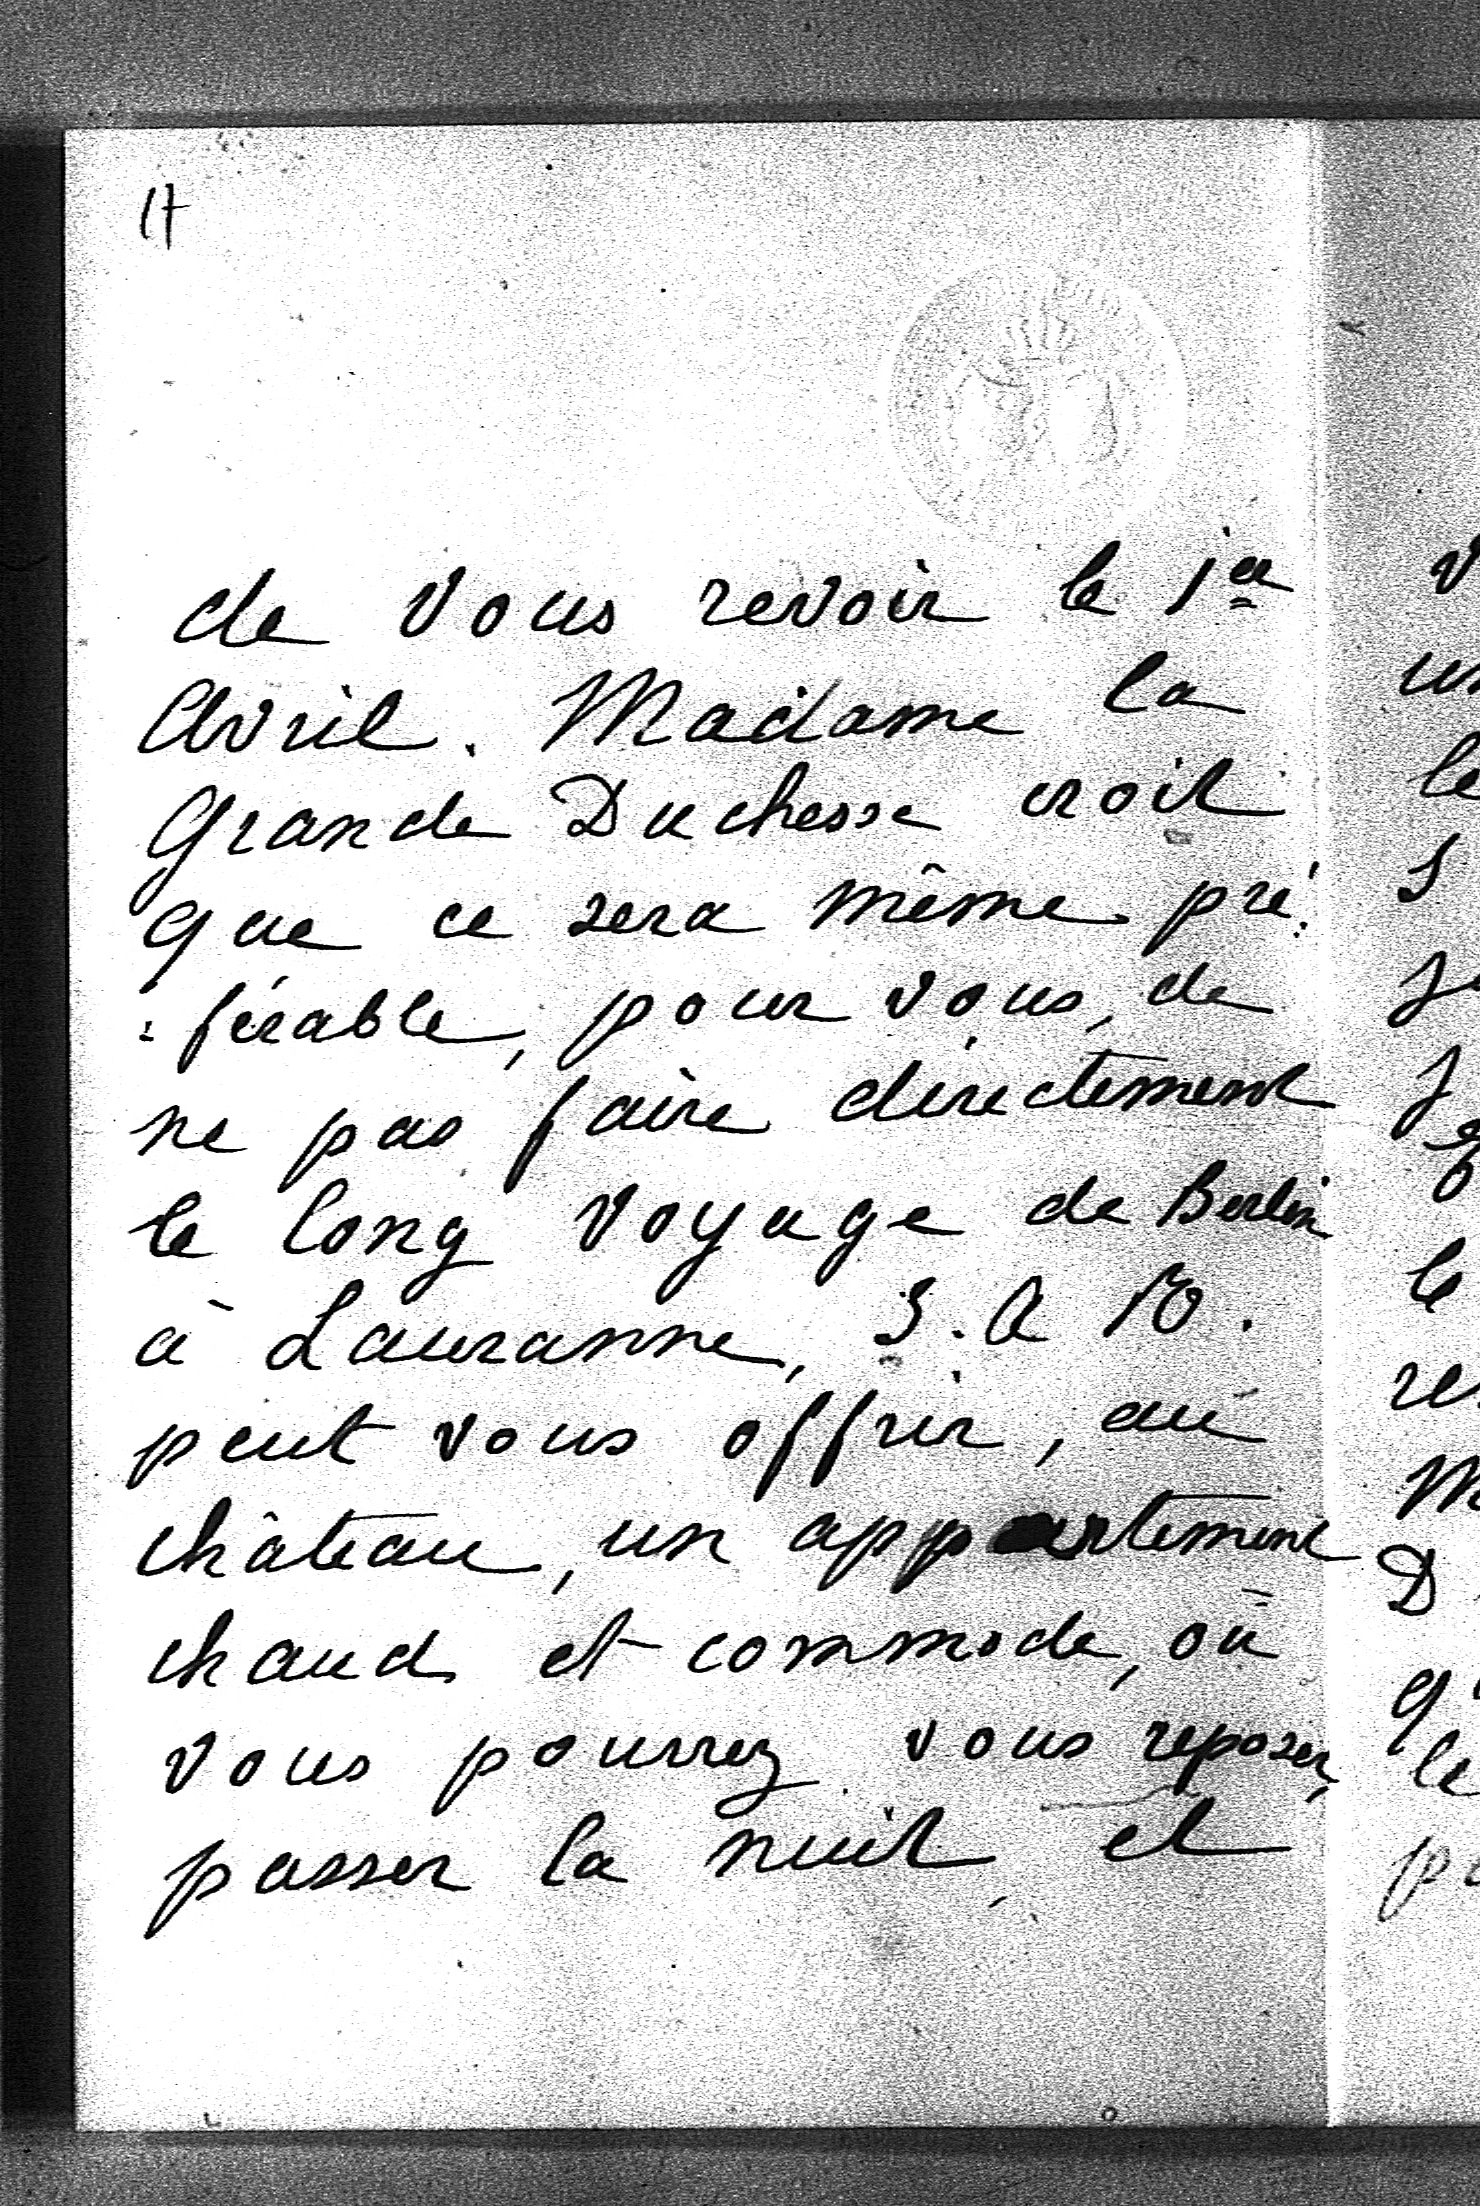 17
de vous revoir le 1er
Avril. Madame la
Grande Duchesse croit
que ce sera même pré:
:férable, pour vous, de
ne pas faire directement
le long voyage de Berlin
à Lausanne, S. A R.
peut vous offrir, au
château, un appartement
chaud et commode, où
vous pourrez vous reposer,
passer la nuit, et